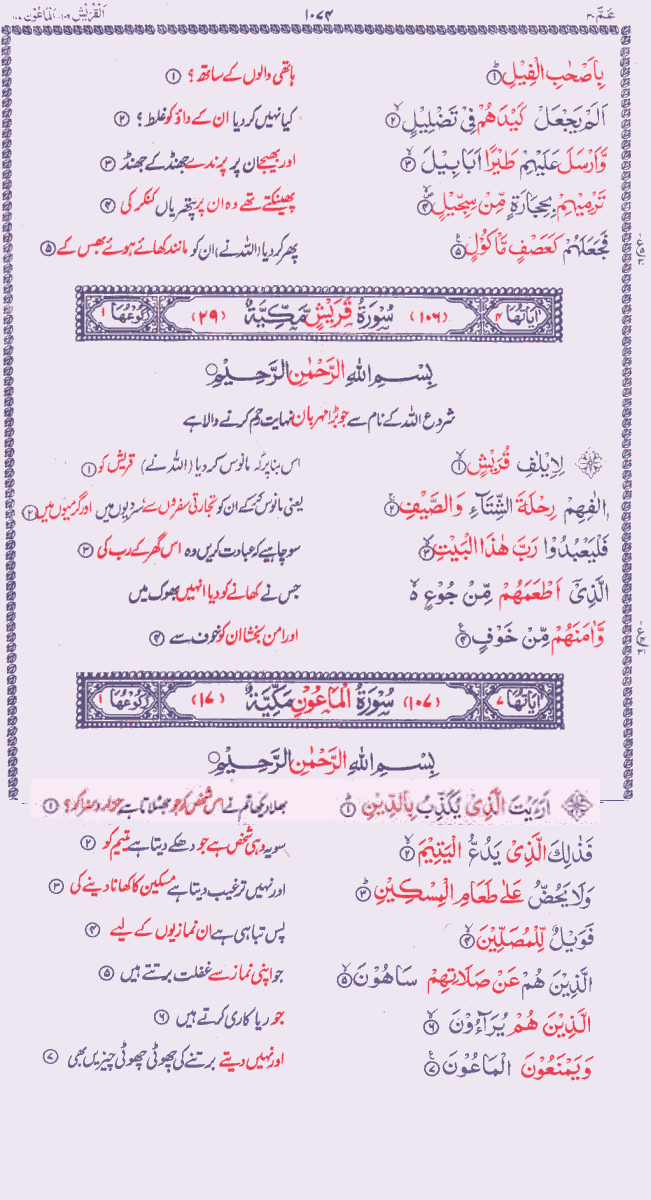 عَمَّ ۳۰ ۱۰۷۴ الْقُرَيْش ۱۰۶، الْمَاعُوْن ۱۰۷
بِاَصْحٰبِ الْفِيْلِ ① ہاتھی والوں کے ساتھ؟ ①
اَلَمْ يَجْعَلْ كَيْدَهُمْ فِيْ تَضْلِيْلٍ ② کیا نہیں کر دیا ان کے داؤ کو غلط؟ ②
وَّاَرْسَلَ عَلَيْهِمْ طَيْرًا اَبَابِيْلَ ③ اور بھیجے ان پر پرندے جھنڈ کے جھنڈ ③
تَرْمِيْهِمْ بِحِجَارَةٍ مِّنْ سِجِّيْلٍ ④ پھینکتے تھے وہ ان پر پتھریاں کنکر کی ④
فَجَعَلَهُمْ كَعَصْفٍ مَّاْكُوْلٍ ⑤ پھر کر دیا (اللہ نے) ان کو مانند کھائے ہوئے بھس کے ⑤
اٰيَاتُهَا ۴ (۱۰۶) سُوْرَةُ قُرَيْشٍ مَّكِّيَّةٌ (۲۹) رُكُوْعُهَا ۱
بِسْمِ اللهِ الرَّحْمٰنِ الرَّحِيْمِ
شروع اللہ کے نام سے جو بڑا مہربان نہایت رحم کرنے والا ہے
لِاِيْلٰفِ قُرَيْشٍ ① اس بنا پر کہ مانوس کر دیا (اللہ نے) قریش کو ①
اٖلٰفِهِمْ رِحْلَةَ الشِّتَآءِ وَالصَّيْفِ ② یعنی مانوس کر کے ان کو تجارتی سفروں سے سردیوں میں اور گرمیوں میں ②
فَلْيَعْبُدُوْا رَبَّ هٰذَا الْبَيْتِ ③ سو چاہیے کہ عبادت کریں وہ اس گھر کے رب کی ③
الَّذِيْٓ اَطْعَمَهُمْ مِّنْ جُوْعٍ ۙ جس نے کھانے کو دیا انہیں بھوک میں
وَّاٰمَنَهُمْ مِّنْ خَوْفٍ ④ اور امن بخشا ان کو خوف سے ④
اٰيَاتُهَا ۷ (۱۰۷) سُوْرَةُ الْمَاعُوْنِ مَكِّيَّةٌ (۱۷) رُكُوْعُهَا ۱
بِسْمِ اللهِ الرَّحْمٰنِ الرَّحِيْمِ
اَرَءَيْتَ الَّذِيْ يُكَذِّبُ بِالدِّيْنِ ① بھلا دیکھا تم نے اس شخص کو جو جھٹلاتا ہے جزا و سزا کو؟ ①
فَذٰلِكَ الَّذِيْ يَدُعُّ الْيَتِيْمَ ② سو یہ وہی شخص ہے جو دھکے دیتا ہے یتیم کو ②
وَلَا يَحُضُّ عَلٰى طَعَامِ الْمِسْكِيْنِ ③ اور نہیں ترغیب دیتا ہے مسکین کا کھانا دینے کی ③
فَوَيْلٌ لِّلْمُصَلِّيْنَ ④ پس تباہی ہے ان نمازیوں کے لیے ④
الَّذِيْنَ هُمْ عَنْ صَلَاتِهِمْ سَاهُوْنَ ⑤ جو اپنی نماز سے غفلت برتتے ہیں ⑤
الَّذِيْنَ هُمْ يُرَآءُوْنَ ⑥ جو ریا کاری کرتے ہیں ⑥
وَيَمْنَعُوْنَ الْمَاعُوْنَ ⑦ اور نہیں دیتے برتنے کی چھوٹی چھوٹی چیزیں بھی ⑦